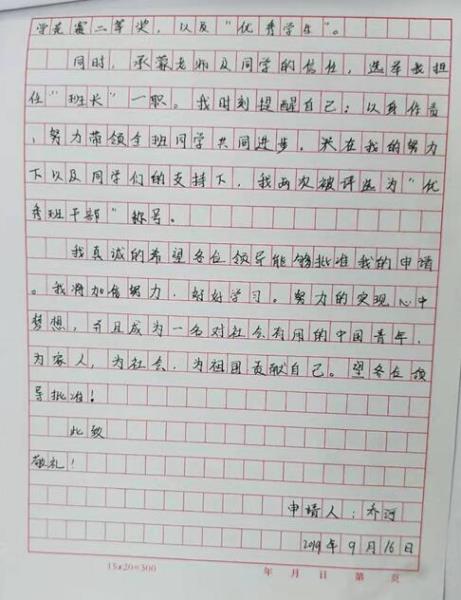 学竞赛二等奖，以及“优秀学生”。
同时，承蒙老师及同学的信任，选举我担
任“班长”一职。我时刻提醒自己：以身作责
，努力带领全班同学共同进步。在我的努力
下以及同学们的支持下，我两次被评选为“优
秀班干部”称号。
我真诚的希望各位领导能够批准我的申请
。我将加倍努力，好好学习。努力的实现心中
梦想，并且成为一名对社会有用的中国青年，
为家人，为社会，为祖国贡献自己。望各位领
导批准！
此致
敬礼！
申请人：乔河
2019年9月16日
15×20=300 年 月 日 第 页